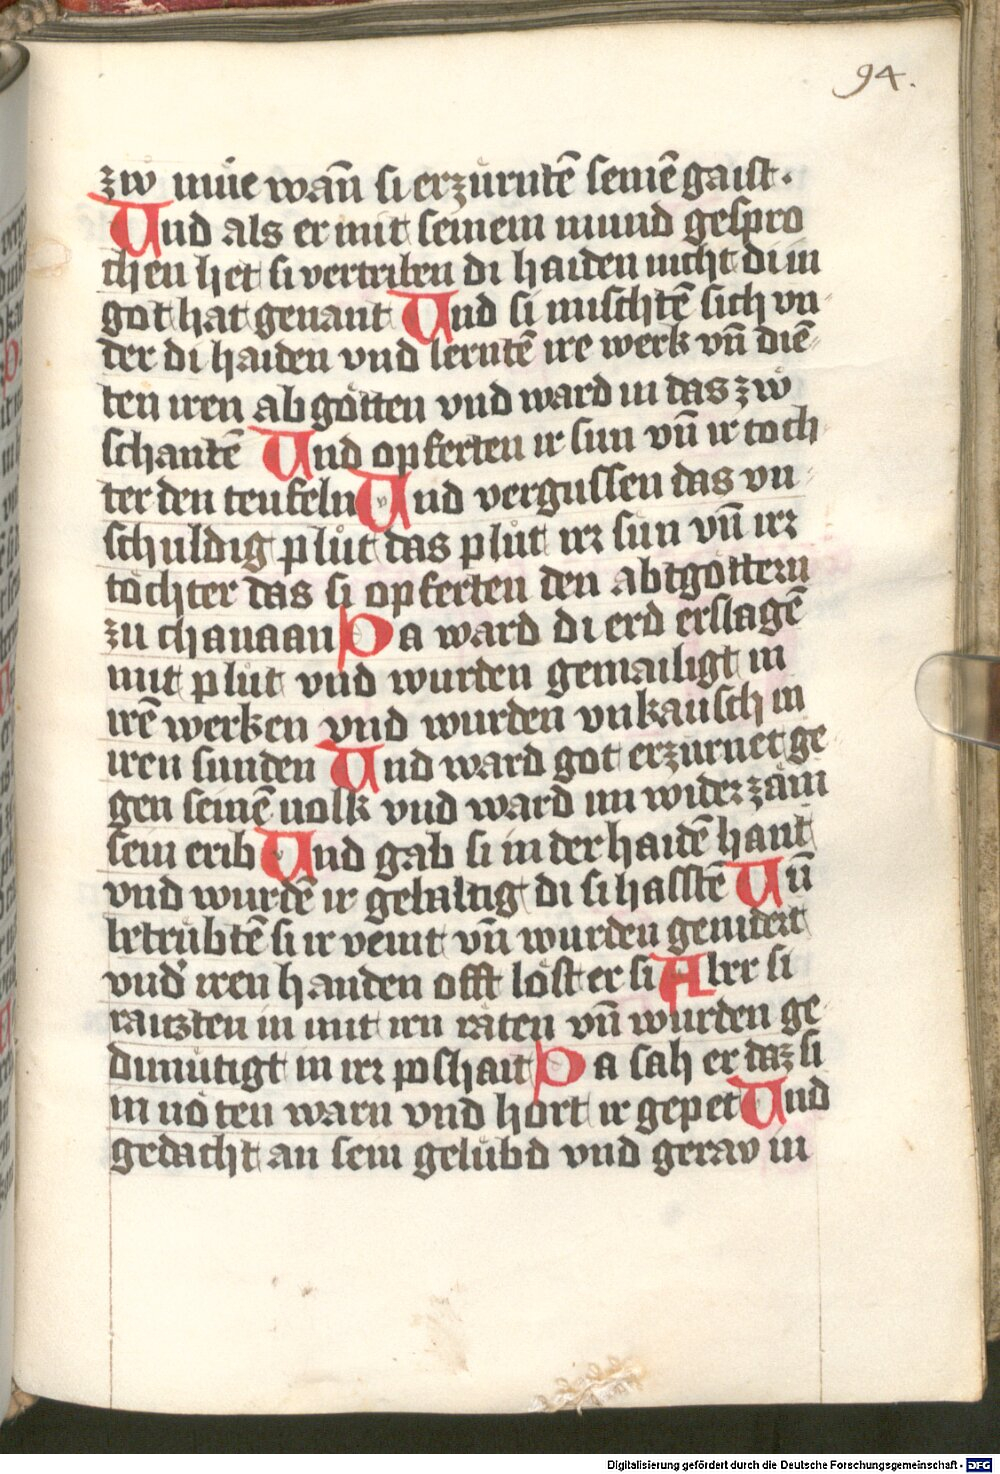 94.
zw müe wan̄ si erzürntē seinē gaist.
Und als er mit seinem mund gespro
chen het si vertriben di haiden nicht di in
got hat genant Und si mischtē sich vn-
der di haiden vnd lerntē ire werk vn̄ diē-
ten iren abgötten vnd ward in das zw
schantē Und opferten ir sun vn̄ ir toch-
ter den teufeln Und vergussen das vn-
schuldig plůt das plůt irr sün vn̄ irr
töchter das si opferten den abtgöttern
zu chanaan Da ward di erd erslagē
mit plůt vnd wurden gemailigt in
irē werken vnd wurden vnkausch in
iren sunden Und ward got erzürnet ge-
gen seinē uolk vnd ward im widerzäm
sein erib Und gab si in der haidē hant
vnd wurdē ir gebaltig di si hasstē Un̄
betrübtē si ir veint vn̄ wurden genidert
vnd' iren handen offt löst er si Aber si
raitzten in mit irn räten vn̄ wurden ge-
dimütigt in irr poshait Da sah er daz si
in nöten warn vnd hort ir gepet Und
gedacht an sein gelübd vnd gerav in
Digitalisierung gefördert durch die Deutsche Forschungsgemeinschaft - DFG